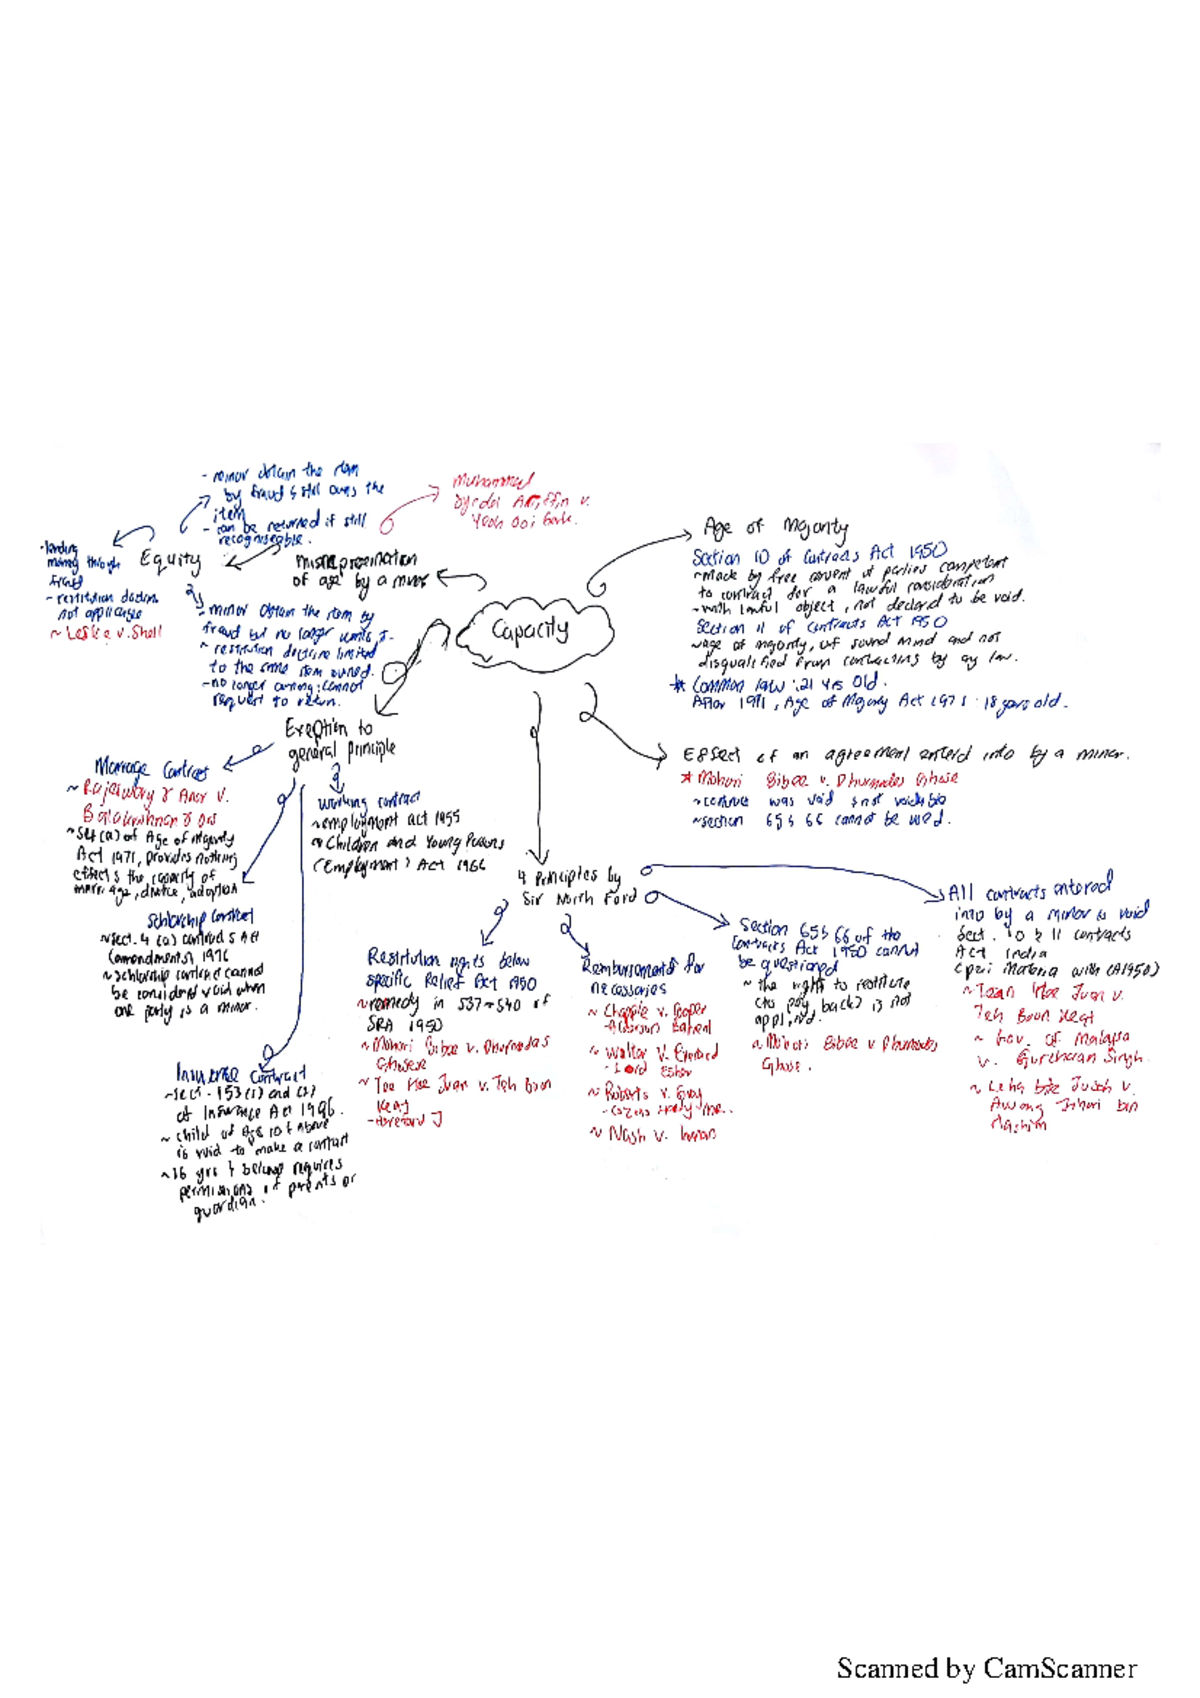 Capacity
Age of Majority
Section 10 of Contracts Act 1950
~ Made by free consent of parties competent
to contract for a lawful consideration
~ with lawful object, not declared to be void.
Section 11 of Contracts Act 1950
age of majority, of sound mind and not
disqualified from contracting by any law.
* Common law : 21 yrs old.
After 1971, Age of Majority Act 1971 : 18 years old.
Effect of an agreement enterd into by a minor.
* Mohori Bibee v. Dhurmodas Ghose
~ contract was void & not voidable
~ section 65 & 66 cannot be used.
4 Principles by
Sir North Ford
All contracts entered
into by a minor is void
Sect. 10 & 11 Contracts
Act India
materia with CA1950)
~ Tan Hee Juan v.
Teh Boon Keat
~ Gov. of Malaysia
v. Gurcharan Singh
~ Leha bte Jusoh v.
Awang Johari bin
Hashim
Section 65 & 66 of the
Contracts Act 1950 cannot
be questioned
~ the rights to restitute
(to pay back) is not
applied.
~ Mohori Bibee v Dhurmodas
Ghose.
Reimbursements for
necessaries
~ Chapple v. Cooper
~ Walter v. Everard
- Lord Esher
~ Roberts v. Gray
- Cozens Hardy
~ Nash v. Inman
Restitution rights below
specific Relief Act 1950
~ remedy in S37 ~ S40 of
SRA 1950
~ Mohori Bibee v. Dhurmodas
Ghose
~ Tan Hee Juan v. Teh Boon
Keat
Exeption to
general principle
Marriage Contract
~ Rajeswary & Anor v.
Balakrishnan & Ors
~ S4(a) of Age of Majority
Act 1971, provides nothing
effects the capacity of
marriage, divorce, adoption
Working contract
~ employment act 1955
~ Children and Young Persons
(Employment) Act 1966
Schlorship Contract
~ Sect. 4 (a) contracts Act
(amendments) 1976
~ schlorship contract cannot
be considerd void when
one party is a minor.
Insurance Contract
~ Sect. 153(1) and
of Insurance Act 1996.
~ child of Age 10 & above
is to make a contract
~ 16 yrs & below requires
permissions of parents or
guardian.
Misrepresentation
of age by a minor
Muhammad
v.
Yeoh Ooi Gark.
Equity
- minor obtain the item
by fraud & still owns the
item
- can be returned if still
recogniseable.
- minor obtain the item by
fraud but no longer
~ restitution doctrine limited
to the same item owned.
- no longer owning: cannot
request to return.
- lending
money through
fraud
- restitution doctrine
not applicable
~ Leslie v. Shell
Scanned by CamScanner